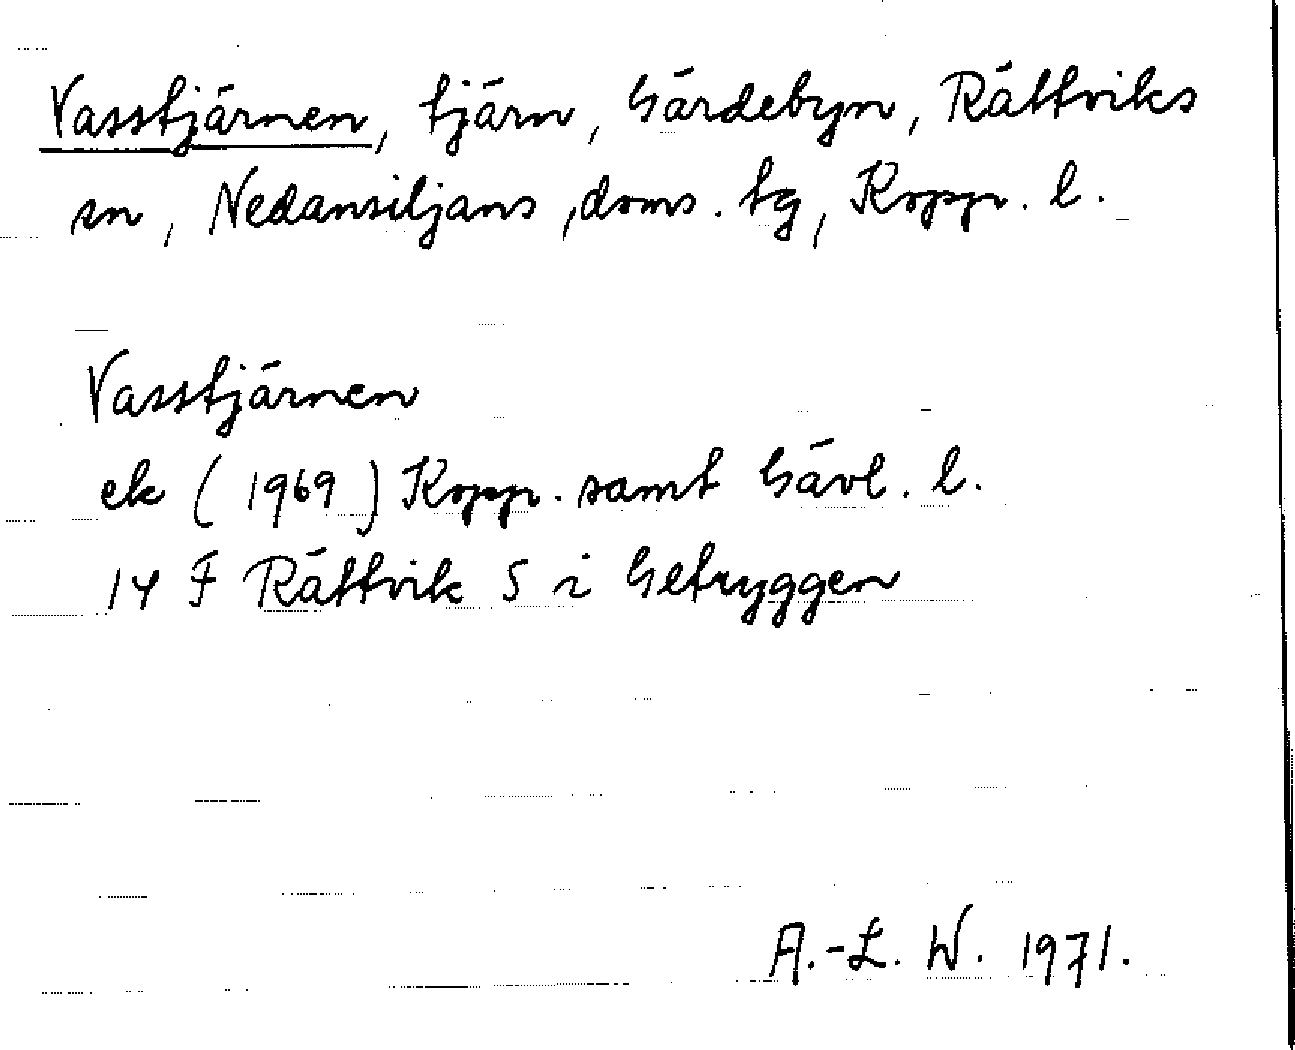 Vasstjärnen, tjärn, Gärdebyn, Rättviks
sn, Nedansiljans, doms. tg, Kopp. l.
Vasstjärnen
ek (1969) Kopp. samt Gävl. l.
14 F Rättvik S i Getryggen
A.-L. W. 1971.